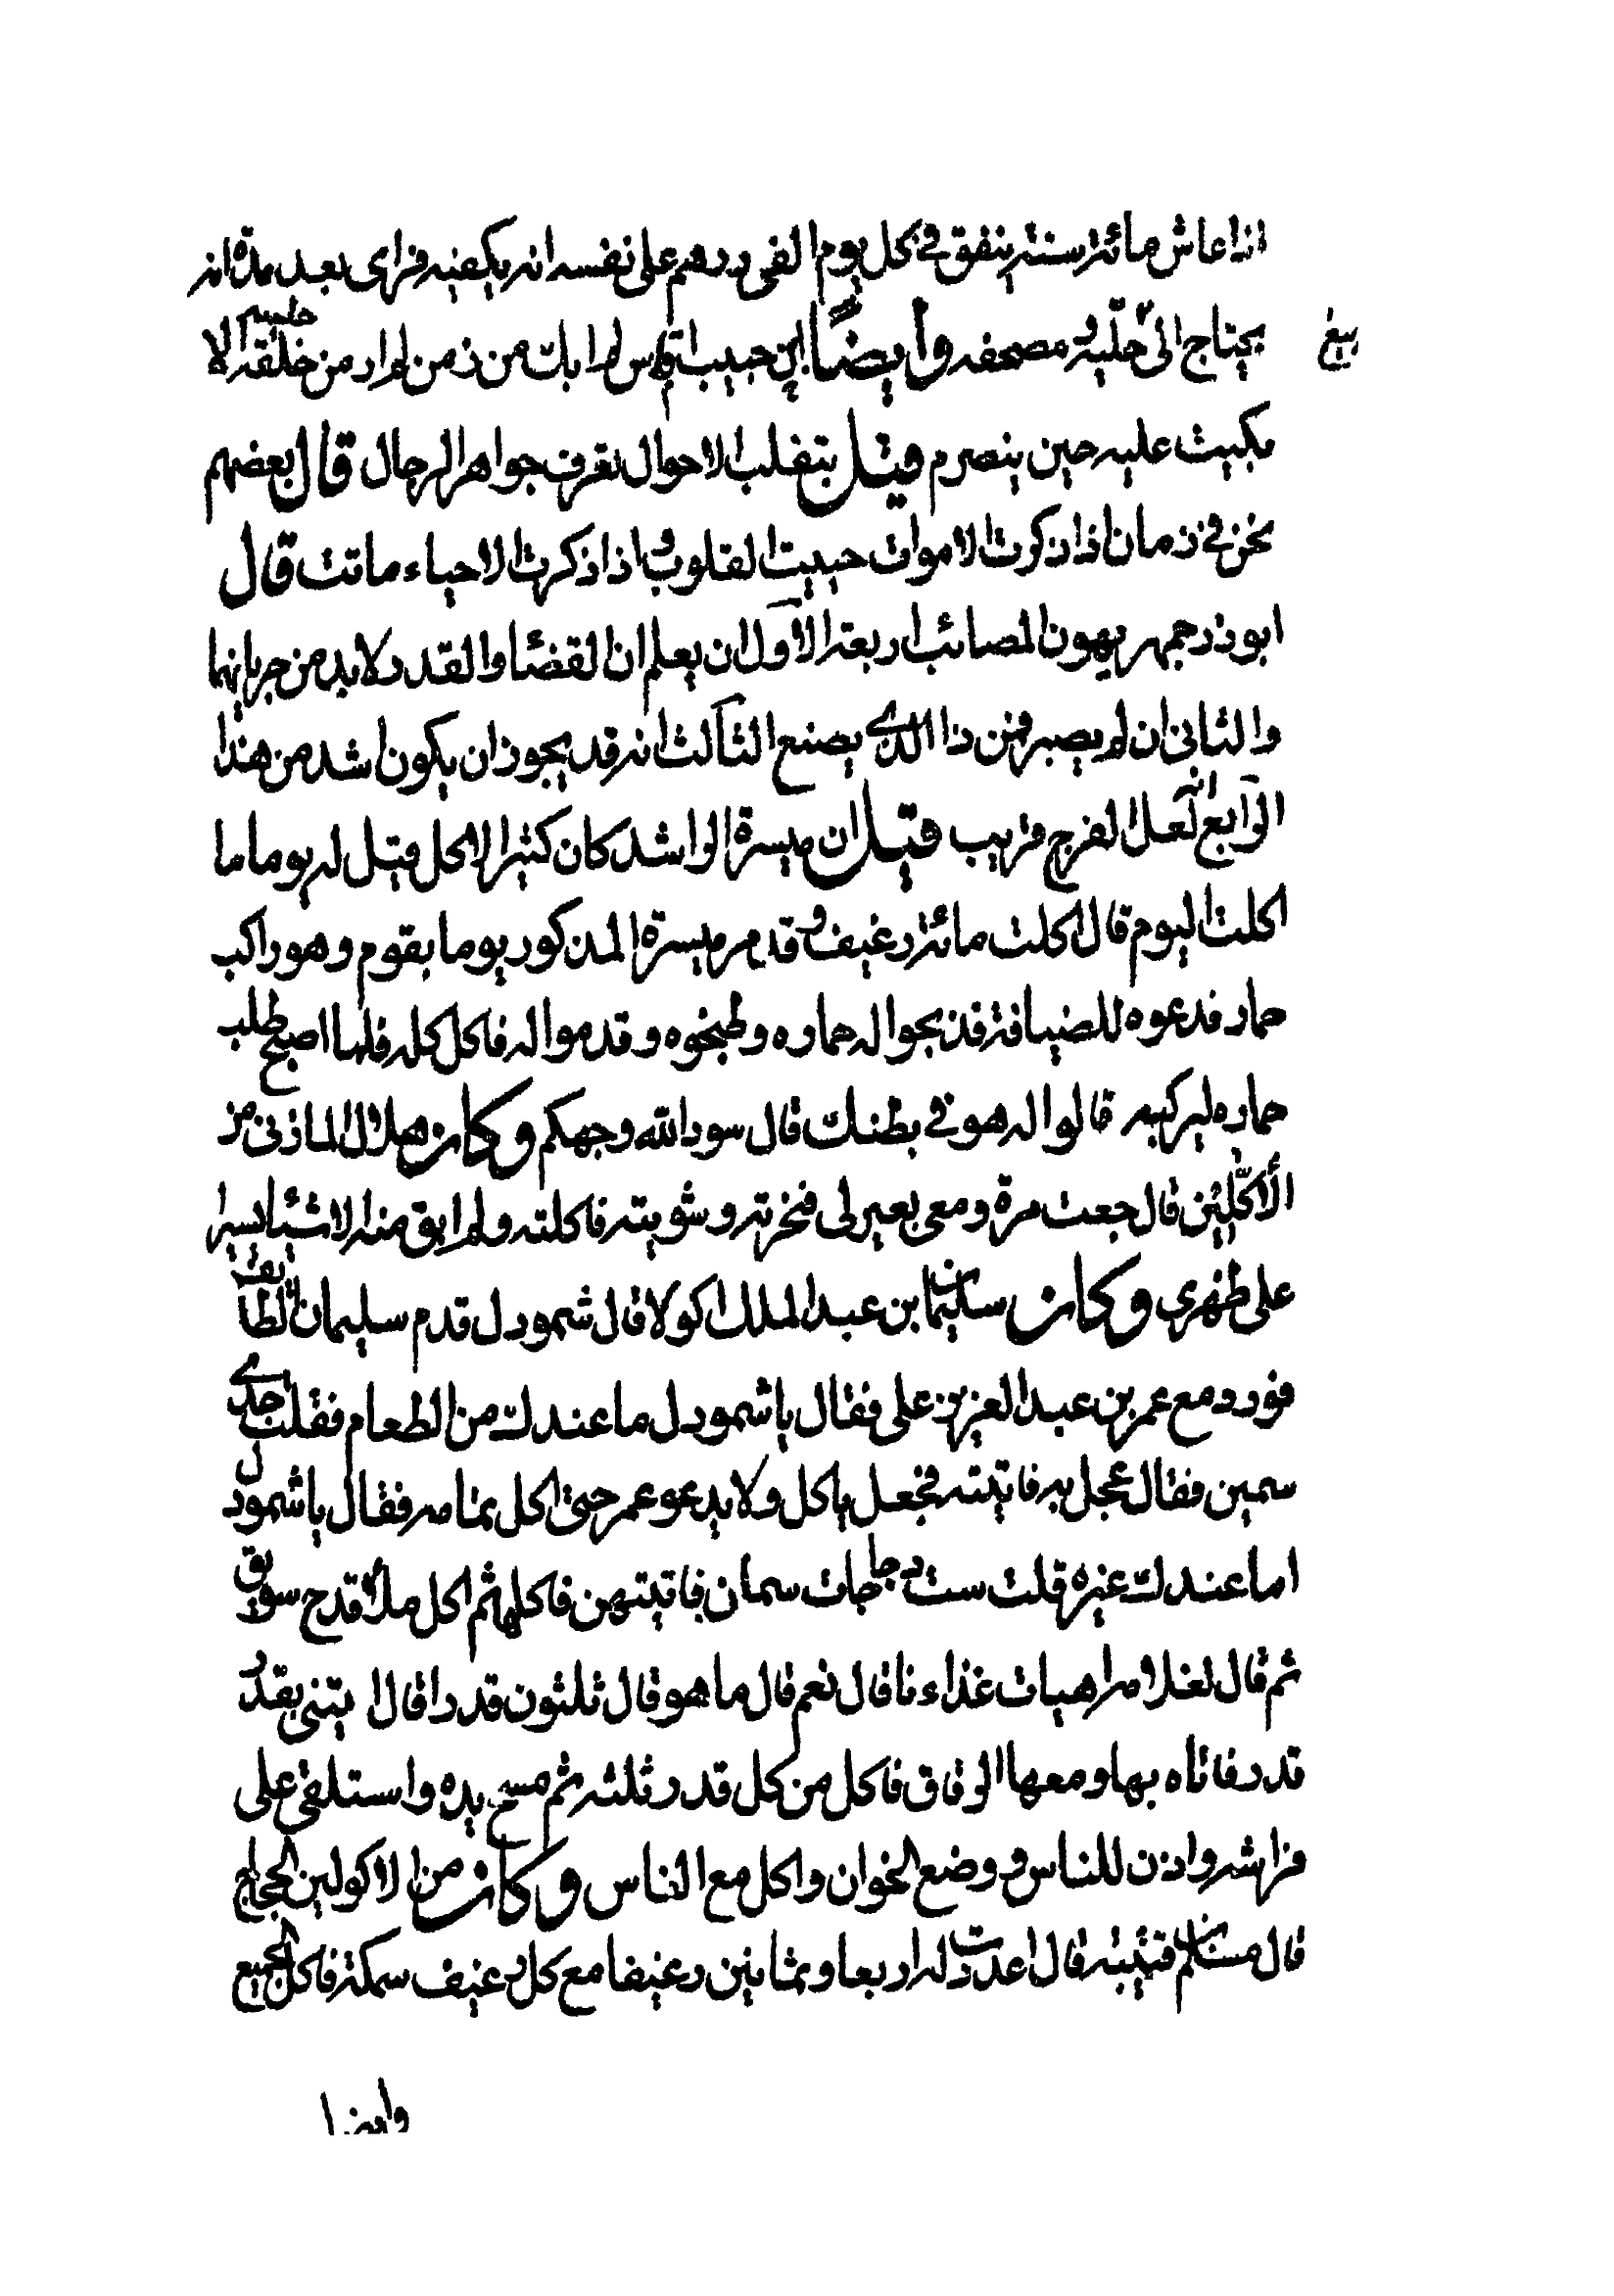 اذا عاش مائة سنة ينفق في كل يوم الفي درهم على نفسه انه يكفيه فراى بعد مدة انه
بيع
يحتاج الى حلية مصحفه وأيضًا ابن حبيب لم ابك من زمن لم ار من خلقه الا
بكيت عليه حين ينصرم قيل بتقلب الاحوال تعرف جواهر الرجال قال بعضهم
نحن في زمان اذا ذكرت الاموات حييت القلوب واذا ذكرت الاحياء ماتت قال
ابوذرجمهر يهون المصائب اربعة الاول ان يعلم ان القضا والقدر لا بد من جريانهما
والثاني ان لم يصبر فمن ذا الذي يصنع الثالث انه قد يجوز ان يكون اشد من هذا
الرابع انه لعل الفرج قريب قيل ان ميسرة الراشد كان كثير الاكل قيل له يوما ما
اكلت اليوم قال اكلت مائة رغيف وقدم ميسرة المذكور يوما بقوم وهو راكب
حمار فدعوه للضيافة فذبحوا له حماره وطبخوه وقدموا له فاكل كله فلما اصبح طلب
حماره ليركبه قالوا له هو في بطنك قال سود الله وجهكم وكان هلال المازني من
الأكلين قال جعت مرة ومعي بعير لي فنحرته وشويته فاكلته ولم ابق منه الا شيئا يسيرا
على ظهري وكان سليمان بن عبد الملك اكولا قال شمودل قدم سليمان الطائف
فورد مع عمر بن عبد العزيز على فقال يا شمودل ما عندك من الطعام فقلت جدي
سمين فقال عجل به فاتيته فجعل ياكل ولا يدعو عمر حتى اكل تمامه فقال يا شمودل
اما عندك غيره قلت ست دجاجات سمان فاتيتهن فاكلها ثم اكل ملأ قدح سويق
ثم قال لغلامه اهيات غذاءنا قال نعم قال ما هو قال ثلثون قدرا قال ايتني بقدر
قدر فاتاه بها ومعها الرقاق فاكل من كل قدر ثلثه ثم مسح يده واستلقى على
فراشه واذن للناس ووضع الخوان واكل مع الناس وكان من الاكولين الحجاج
قال مسلم بن قتيبة قال اعددت له اربعا وثمانين رغيفا مع كل رغيف سمكة فاكل الجميع
وايضا